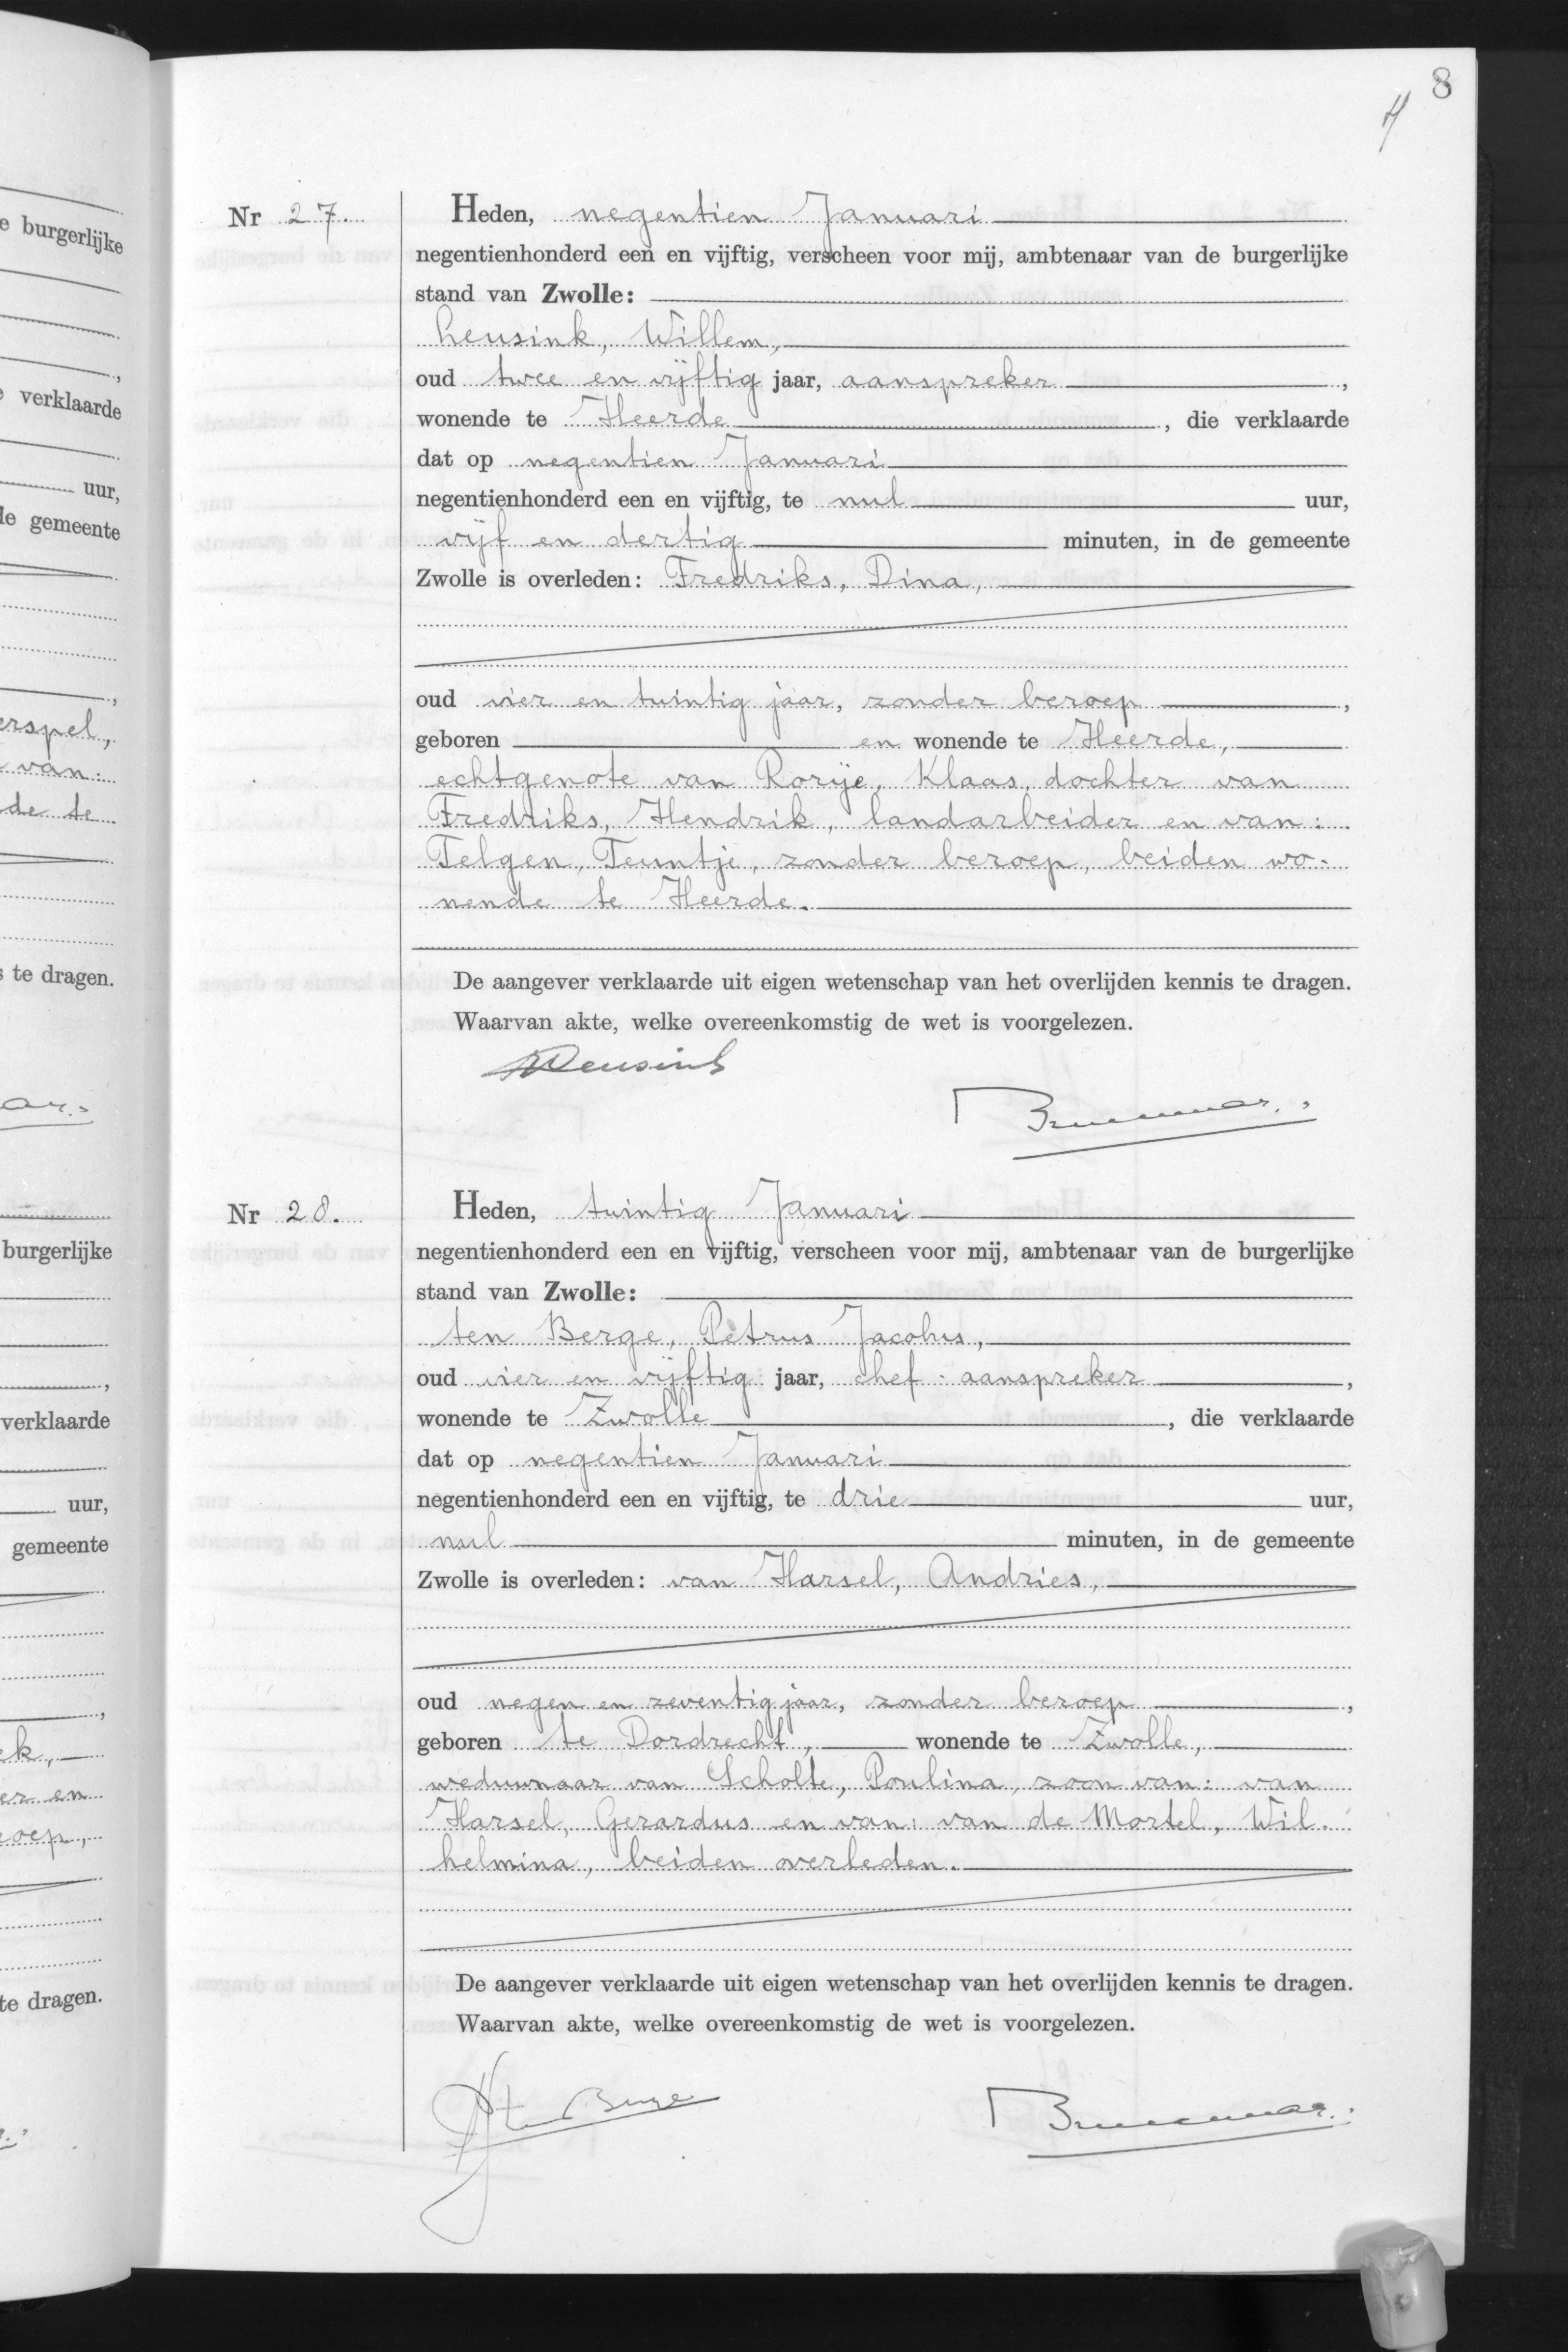 8
e burgerlijke
e verklaarde
uur,
de gemeente
erspel,
van:
de te
s te dragen.
burgerlijke
verklaarde
uur,
gemeente
ek,
er en
roep,
te dragen.
Nr 27.
Heden, negentien Januari
negentienhonderd een en vijftig, verscheen voor mij, ambtenaar van de burgerlijke
stand van Zwolle:
Leusink, Willem,
oud twee en vijftig jaar, aanspreker ,
wonende te Heerde , die verklaarde
dat op negentien Januari
negentienhonderd een en vijftig, te nul uur,
vijf en dertig minuten, in de gemeente
Zwolle is overleden: Fredriks, Dina,
oud vier en twintig jaar, zonder beroep ,
geboren en wonende te Heerde,
echtgenote van Rorije, Klaas, dochter van
Fredriks, Hendrik, landarbeider en van:
Telgen, Teuntje, zonder beroep, beiden wo-
nende te Heerde.
De aangever verklaarde uit eigen wetenschap van het overlijden kennis te dragen.
Waarvan akte, welke overeenkomstig de wet is voorgelezen.
WLeusink
Nr 28.
Heden, twintig Januari
negentienhonderd een en vijftig, verscheen voor mij, ambtenaar van de burgerlijke
stand van Zwolle:
ten Berge, Petrus Jacobus,
oud vier en vijftig jaar, chef-aanspreker ,
wonende te Zwolle , die verklaarde
dat op negentien Januari
negentienhonderd een en vijftig, te drie uur,
nul minuten, in de gemeente
Zwolle is overleden: van Harsel, Andries,
oud negen en zeventig jaar, zonder beroep ,
geboren te Dordrecht, wonende te Zwolle,
weduwnaar van Scholte, Poulina, zoon van: van
Harsel, Gerardus en van: van de Mortel, Wil-
helmina, beiden overleden.
De aangever verklaarde uit eigen wetenschap van het overlijden kennis te dragen.
Waarvan akte, welke overeenkomstig de wet is voorgelezen.
PJtenBerge